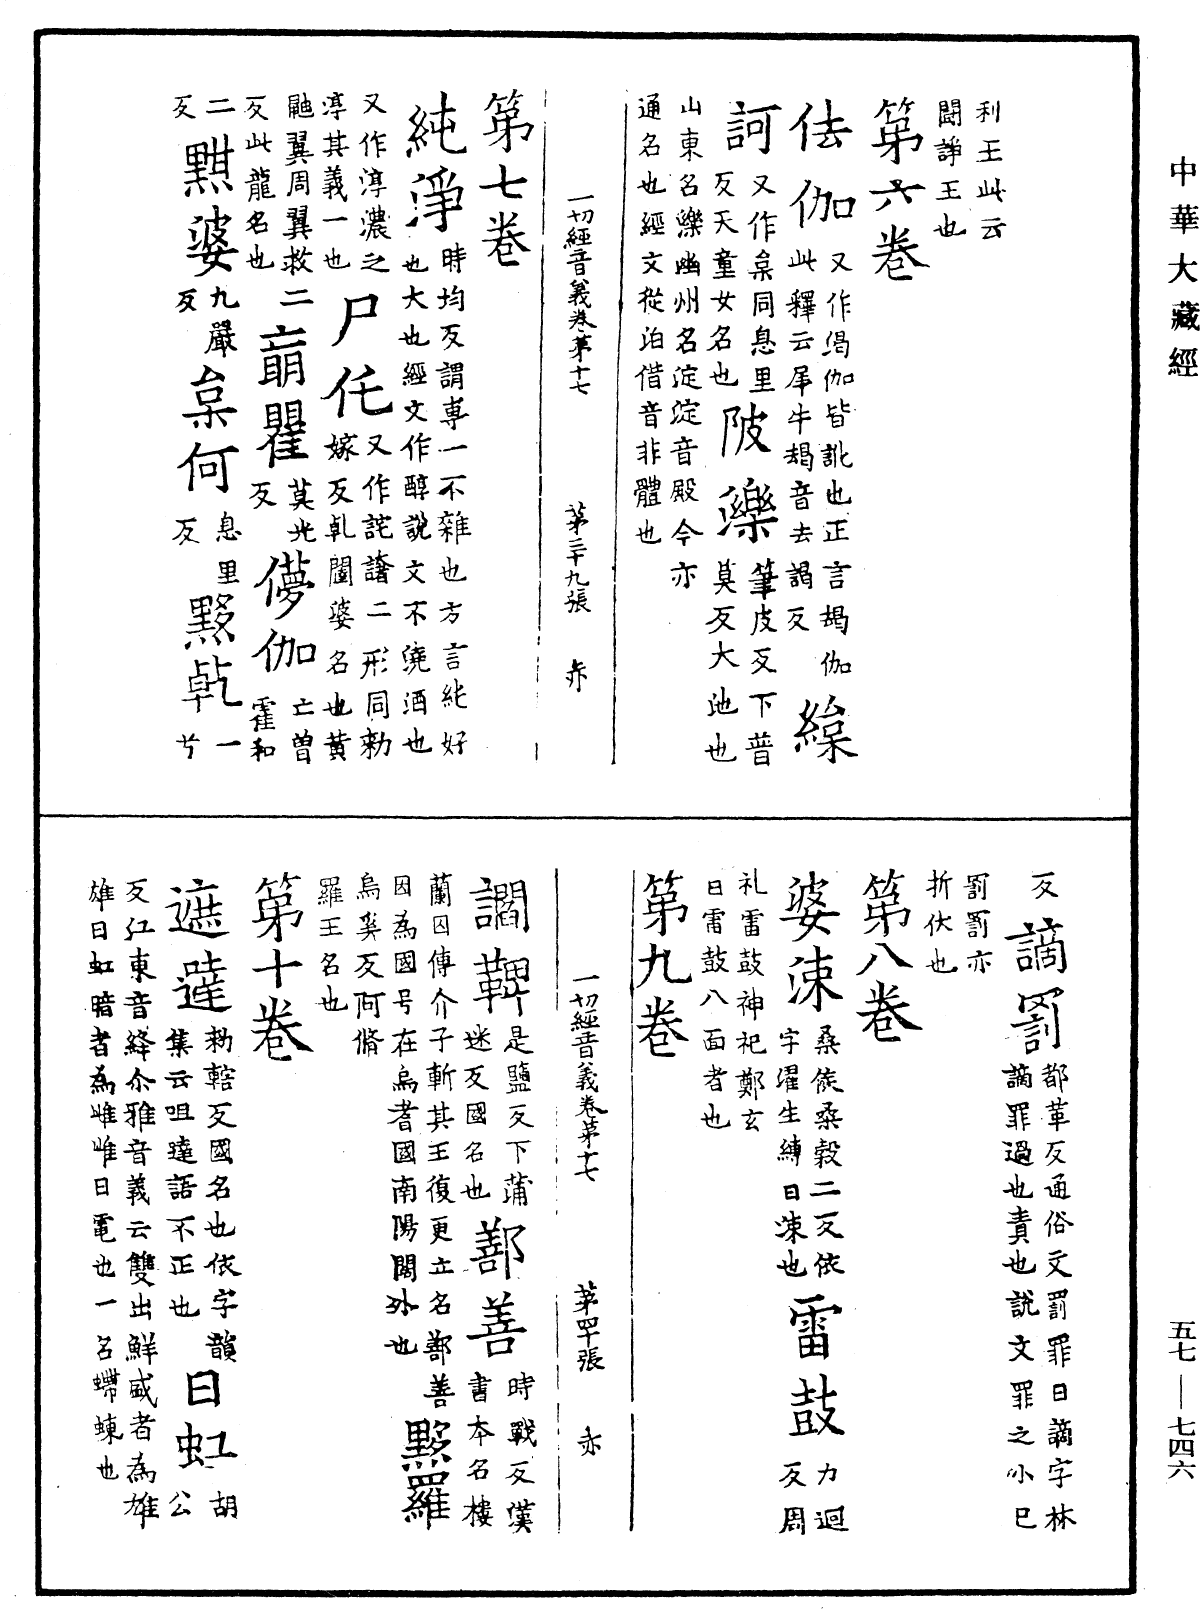 中華大藏經
利王此云
鬪諍王也
第六卷
佉伽 又作偈伽皆訛也正言朅伽
此釋云犀牛朅音去謁反 繰
訶 又作枲同息里
反天童女名也 陂濼 筆皮反下普
莫反大池也
山東名濼幽州名淀淀音殿今亦
通名也經文從泊借音非體也
一切經音義卷第十七 第三十九張 亦
第七卷
純淨 時均反謂專一不雜也方言純好
也大也經文作醇說文不澆酒也
又作淳濃之
淳其義一也 尸仛 又作詫譇二形同勑
嫁反乹闥婆名也黄
翼周翼救二
反此龍名也 萠瞿 莫光
反 儚伽 亡曽
霍和
二
反 婆 九嚴
反 枲何 息里
反 黟乹 一
兮
反 謫罰 都革反通俗文罰罪曰謫字林
謫罪過也責也說文罪之小巳
罰罰亦
折伏也
第八卷
婆涑 桑侯桑穀二反依
字濯生縳曰涑也 雷鼓 力迴
反周
礼雷鼓神祀鄭玄
曰雷鼓八面者也
第九卷
讇鞞 是鹽反下蒲
迷反國名也 鄯善 時戰反漢
書本名樓
蘭因傳介子斬其王復更立名鄯善
因為國号在烏耆國南陽關外也 黟羅
烏奚反阿脩
羅王名也
一切經音義卷第十七 第四十張 亦
第十卷
遮躂 勑轄反國名也依字韻
集云咀躂語不正也 日虹 胡
公
反江東音絳尒雅音義云雙出鮮盛者為雄
雄曰虹暗者為雌雌曰電也一名螮蝀也
五七—七四六